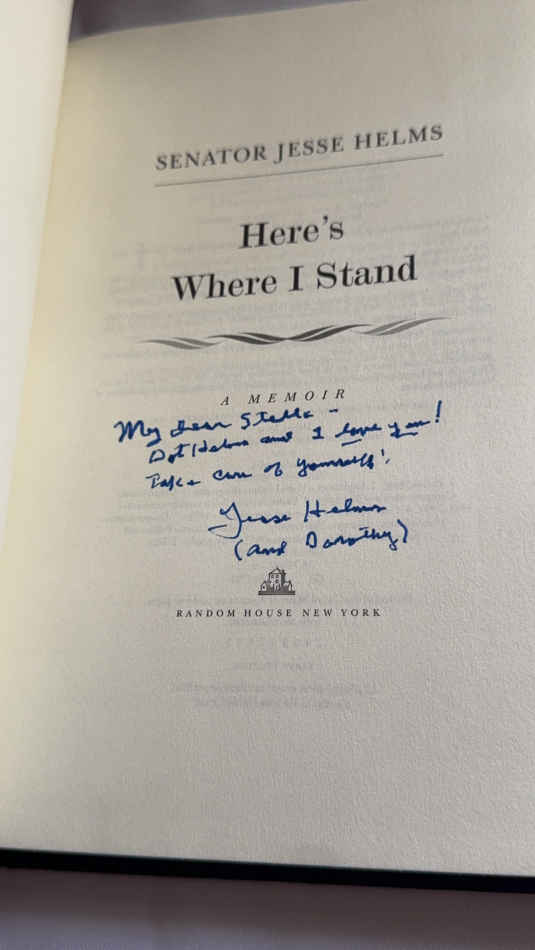 SENATOR JESSE HELMS
Here's
Where I Stand
A MEMOIR
My dear Stella -
Dot Helms and I love you!
Take care of yourself!
Jesse Helms
(and Dorothy)
RANDOM HOUSE NEW YORK